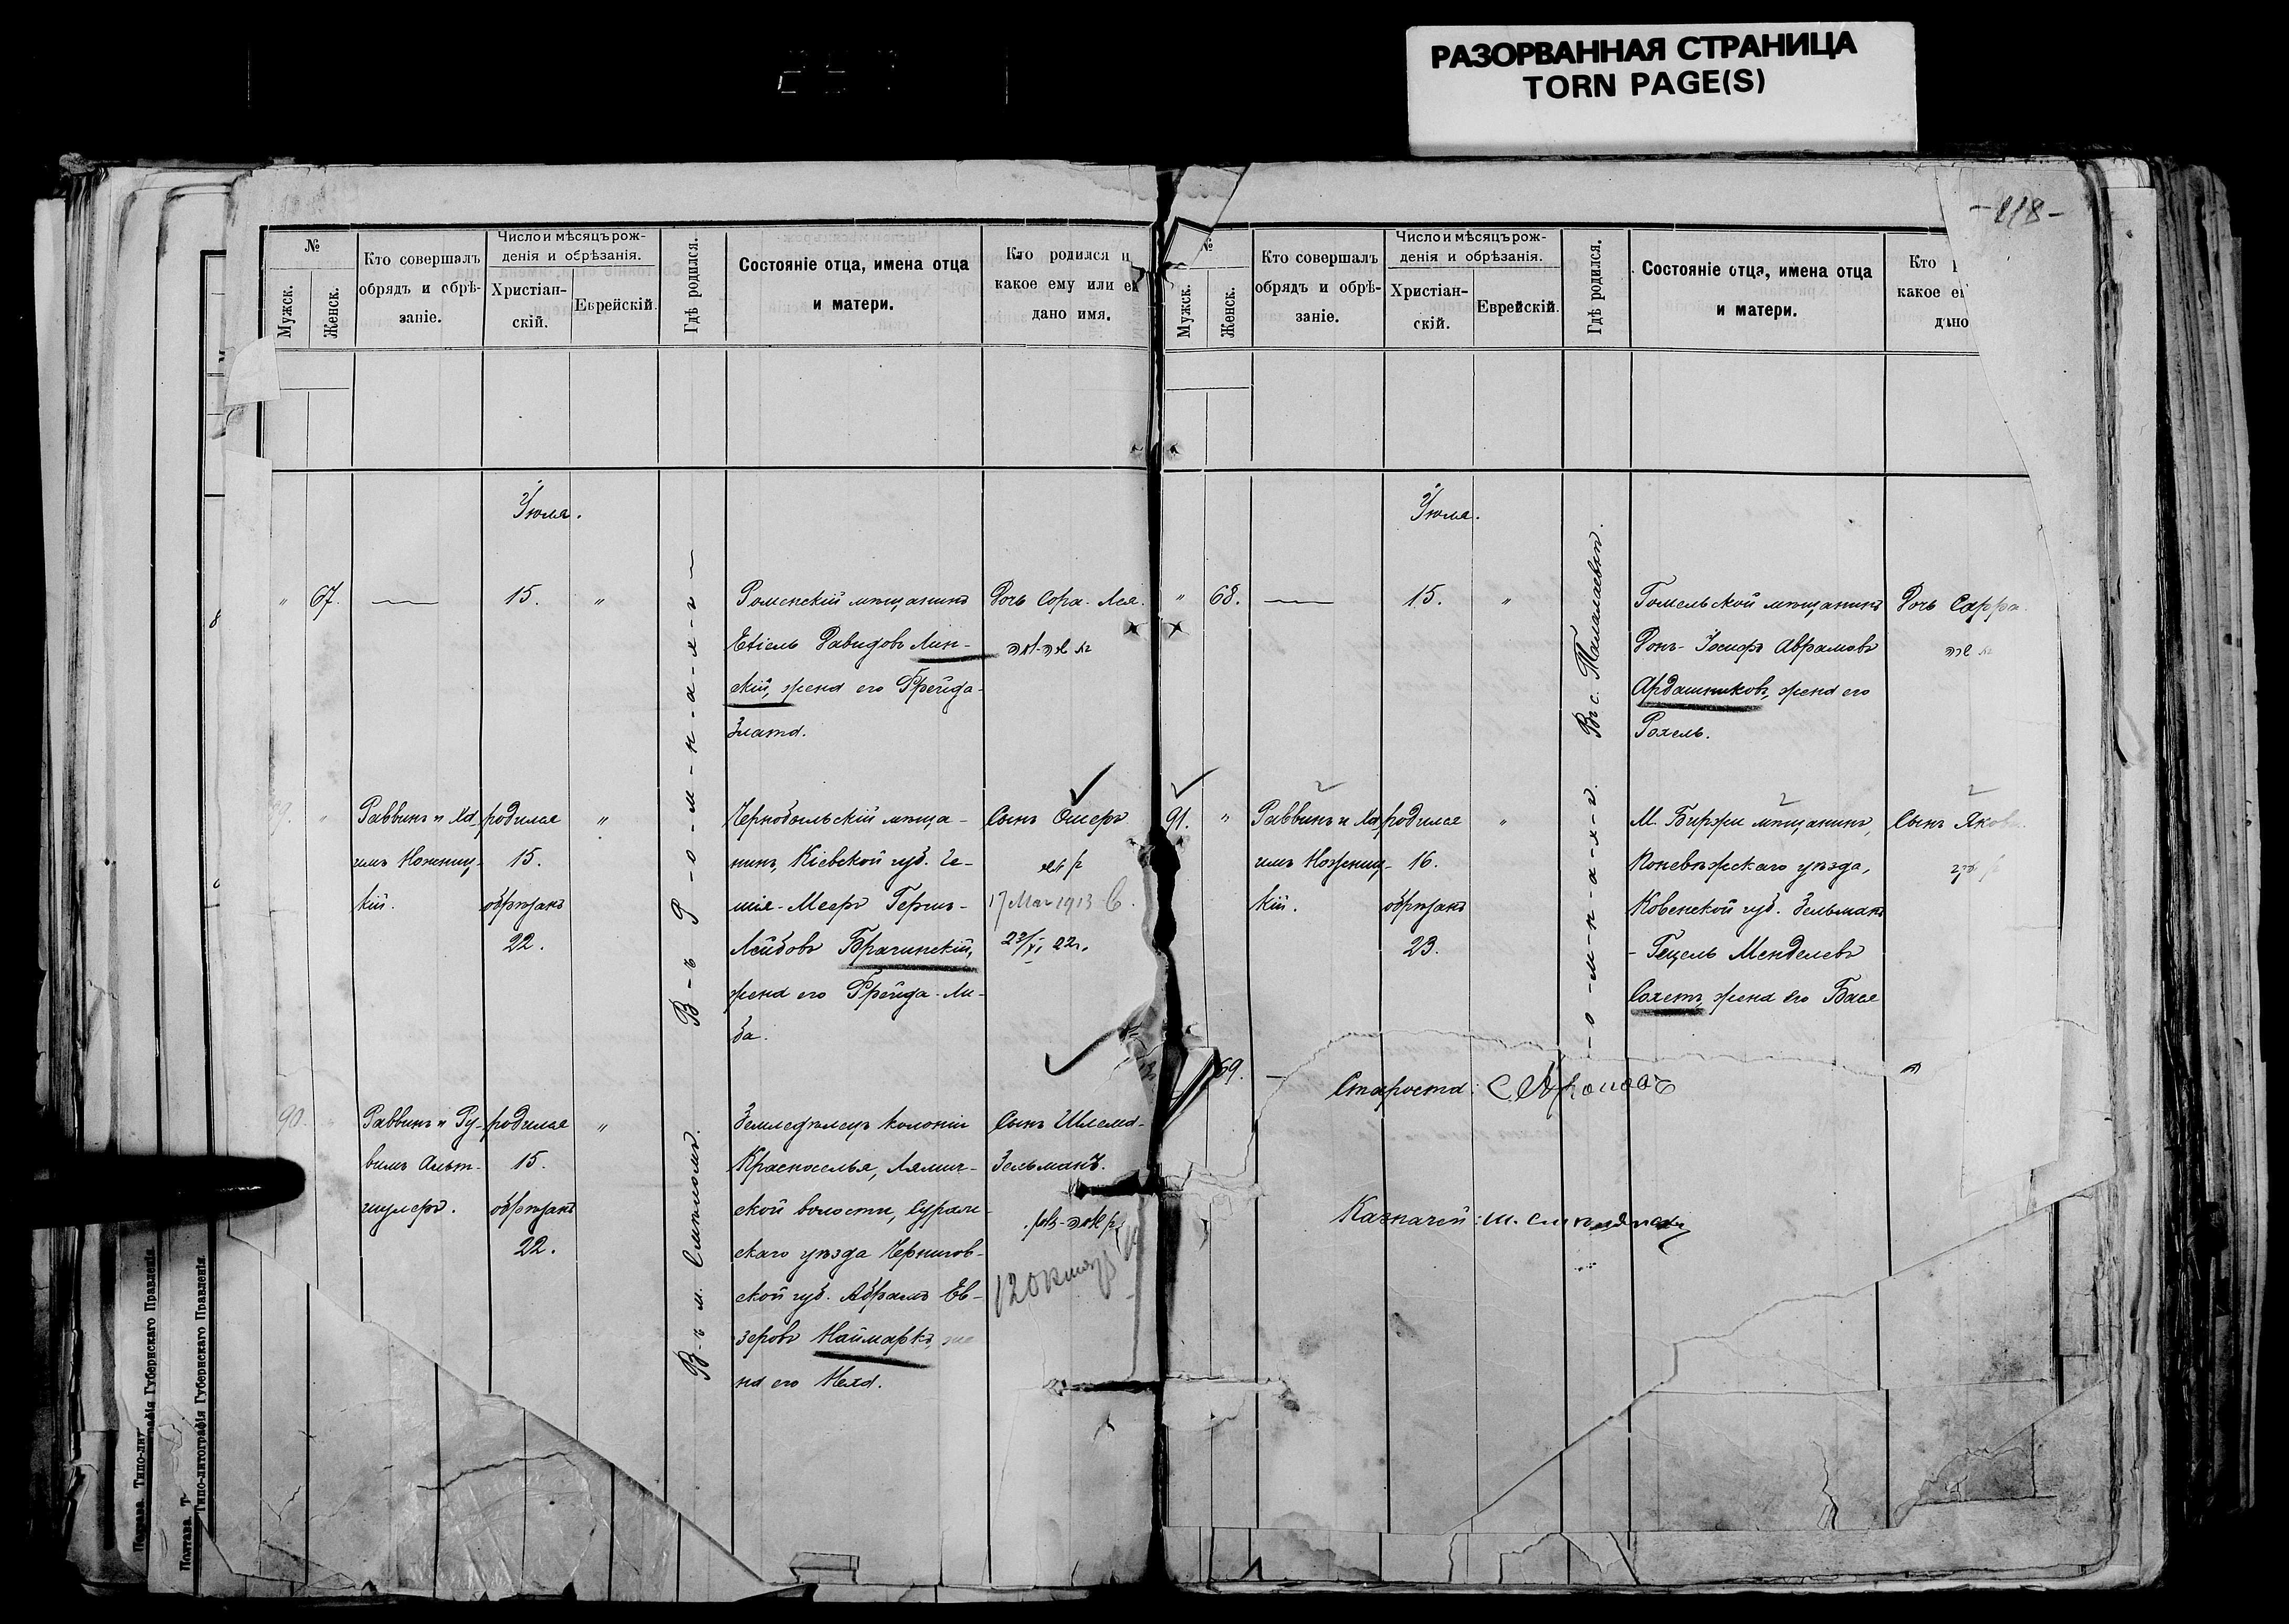 РАЗОРВАННАЯ СТРАНИЦА
TORN PAGE(S)
-118-
№
Мужск.
Женск.
Кто совершалъ
обрядъ и обрѣ-
заніе.
Число и мѣсяцъ рож-
денія и обрѣзанія.
Христіан-
скій.
Еврейскій.
Гдѣ родился.
Состояніе отца, имена отца
и матери.
Кто родился и
какое ему или ей
дано имя.
Іюля.
" 67.
15.
"
Роменскій мѣщанинъ
Ехіель Давидовъ Лин-
скій, жена его Фрейда-
Злата.
Дочь Сора-Лея.
В-ъ Р-о-м-н-а-х-ъ
"
Раввинъ и Ха-
имъ Ножниц-
кій.
родился
15.
обрѣзанъ
22.
"
Чернобыльскій мѣща-
нинъ, Кіевской губ. Ге-
шія-Мееръ Герш-
Лейбовъ Брагинскій,
жена его Фрейда-Ли-
ба.
Сынъ Ошеръ
17 Мая 1913
23/XI 22г.
90.
Раввинъ и Ру-
вимъ Альт-
шулеръ.
родился
15.
обрѣзанъ
22.
"
В-ъ м. Смѣломъ.
Земледѣлецъ колоніи
Красноселья, Лямич-
ской волости, Сураж-
скаго уѣзда Чернигов-
ской губ. Абрамъ Ев-
зеровъ Наймаркъ, же
на его Неха.
Сынъ Шлема-
Зельманъ.
№
Мужск.
Женск.
Кто совершалъ
обрядъ и обрѣ-
заніе.
Число и мѣсяцъ рож-
денія и обрѣзанія.
Христіан-
скій.
Еврейскій.
Гдѣ родился.
Состояніе отца, имена отца
и матери.
Кто
какое
дано
Іюля.
" 68.
15.
"
Въ с. Талалаевкѣ.
Гомельской мѣщанинъ
Донъ-Іосифъ Аврамовъ
Ардашниковъ, жена его
Рохель.
Дочь Сарра
91. "
Раввинъ и Ха-
имъ Ножниц-
кій.
родился
16.
обрѣзанъ
23.
"
-о-м-н-а-х-ъ.
М. Биржи мѣщанинъ,
Поневѣжскаго уѣзда,
Ковенской губ. Зельман
-Гецель Менделевъ
Сохетъ, жена его Бася
Сынъ Яковъ
69.
Староста:
Казначей: Ш.
Полтава. Т
Типо-литографія Губернскаго Правленія